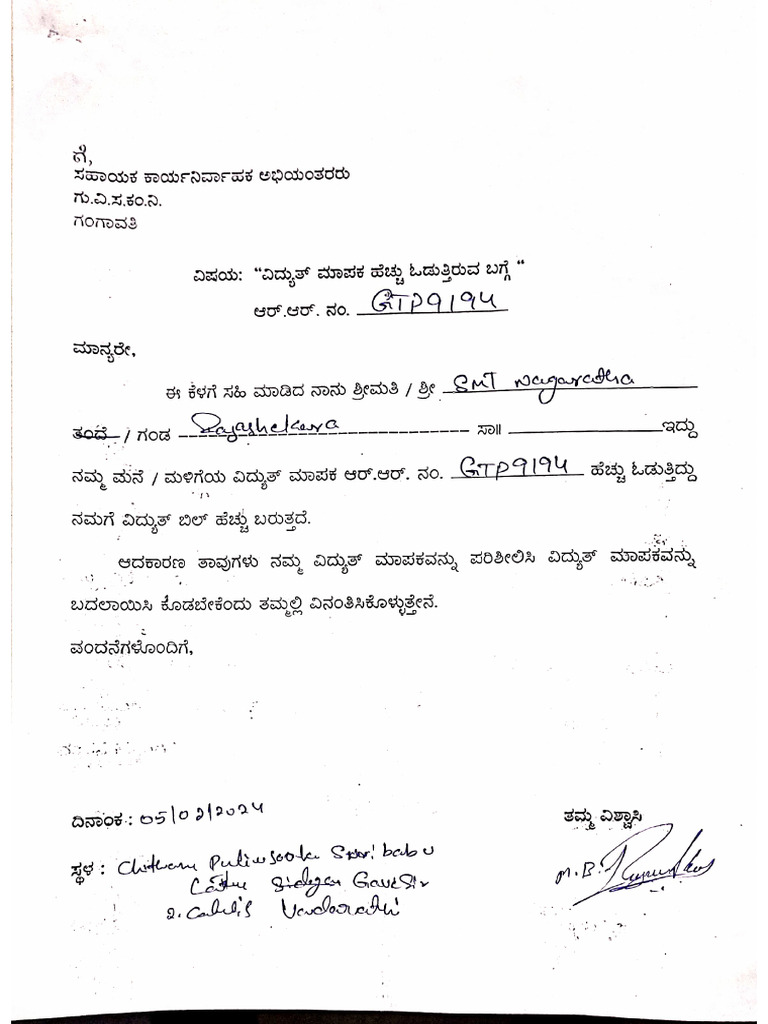 ಗೆ,
ಸಹಾಯಕ ಕಾರ್ಯನಿರ್ವಾಹಕ ಅಭಿಯಂತರರು
ಗು.ವಿ.ಸ.ಕಂ.ನಿ.
ಗಂಗಾವತಿ
ವಿಷಯ: “ವಿದ್ಯುತ್ ಮಾಪಕ ಹೆಚ್ಚು ಓಡುತ್ತಿರುವ ಬಗ್ಗೆ “
ಆರ್.ಆರ್. ನಂ. GTP9194
ಮಾನ್ಯರೇ,
ಈ ಕೆಳಗೆ ಸಹಿ ಮಾಡಿದ ನಾನು ಶ್ರೀಮತಿ / ಶ್ರೀ SMT Nagaratha
ತಂದೆ / ಗಂಡ Rajashekara ಸಾ॥ ಇದ್ದು
ನಮ್ಮ ಮನೆ / ಮಳಿಗೆಯ ವಿದ್ಯುತ್ ಮಾಪಕ ಆರ್.ಆರ್. ನಂ. GTP9194 ಹೆಚ್ಚು ಓಡುತ್ತಿದ್ದು
ನಮಗೆ ವಿದ್ಯುತ್ ಬಿಲ್ ಹೆಚ್ಚು ಬರುತ್ತದೆ.
ಆದಕಾರಣ ತಾವುಗಳು ನಮ್ಮ ವಿದ್ಯುತ್ ಮಾಪಕವನ್ನು ಪರಿಶೀಲಿಸಿ ವಿದ್ಯುತ್ ಮಾಪಕವನ್ನು
ಬದಲಾಯಿಸಿ ಕೊಡಬೇಕೆಂದು ತಮ್ಮಲ್ಲಿ ವಿನಂತಿಸಿಕೊಳ್ಳುತ್ತೇನೆ.
ವಂದನೆಗಳೊಂದಿಗೆ,
ದಿನಾಂಕ : 05/02/2024
ತಮ್ಮ ವಿಶ್ವಾಸಿ
ಸ್ಥಳ : babu
M.B.
2.